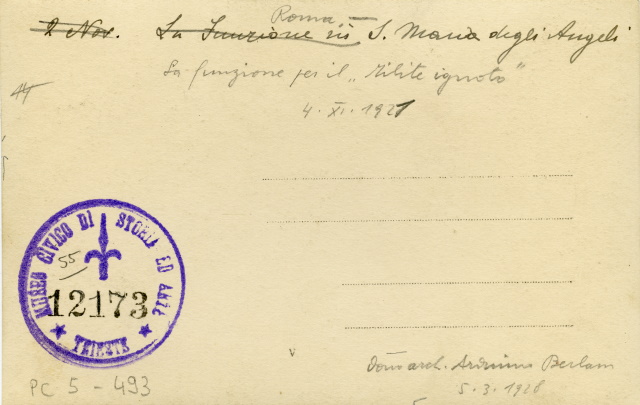 Roma
2 Nov. La Funzione in S. Maria degli Angeli
La funzione per il „Milite ignoto"
4. XI. 1921
44
MUSEO CIVICO DI STORIA ED ARTE
55
12173
TRIESTE
V
Dono arch. Arduino Berlam
5. 3. 1928
PC 5 - 493